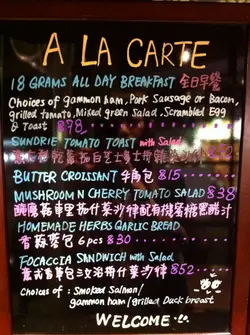 A LA CARTE
18 GRAMS ALL DAY BREAKFAST 全日早餐
Choices of gammon ham, Pork Sausage or Bacon,
grilled tomato, Mixed green Salad, Scrambled Egg
& Toast $78
SUNDRIE TOMATO TOAST with Salad
$52
BUTTER CROISSANT 牛角包 $15
MUSHROOM N CHERRY TOMATO SALAD $38
車厘茄什菜沙律配
黑醋汁
HOMEMADE HERBS GARLIC BREAD
香蒜麥包 6pcs $30
FOCACCIA SANDWICH with Salad
意式香草包三文治拼什菜沙律 $52
Choices of : Smoked Salmon/
gammon ham/grilled Duck breast
WELCOME